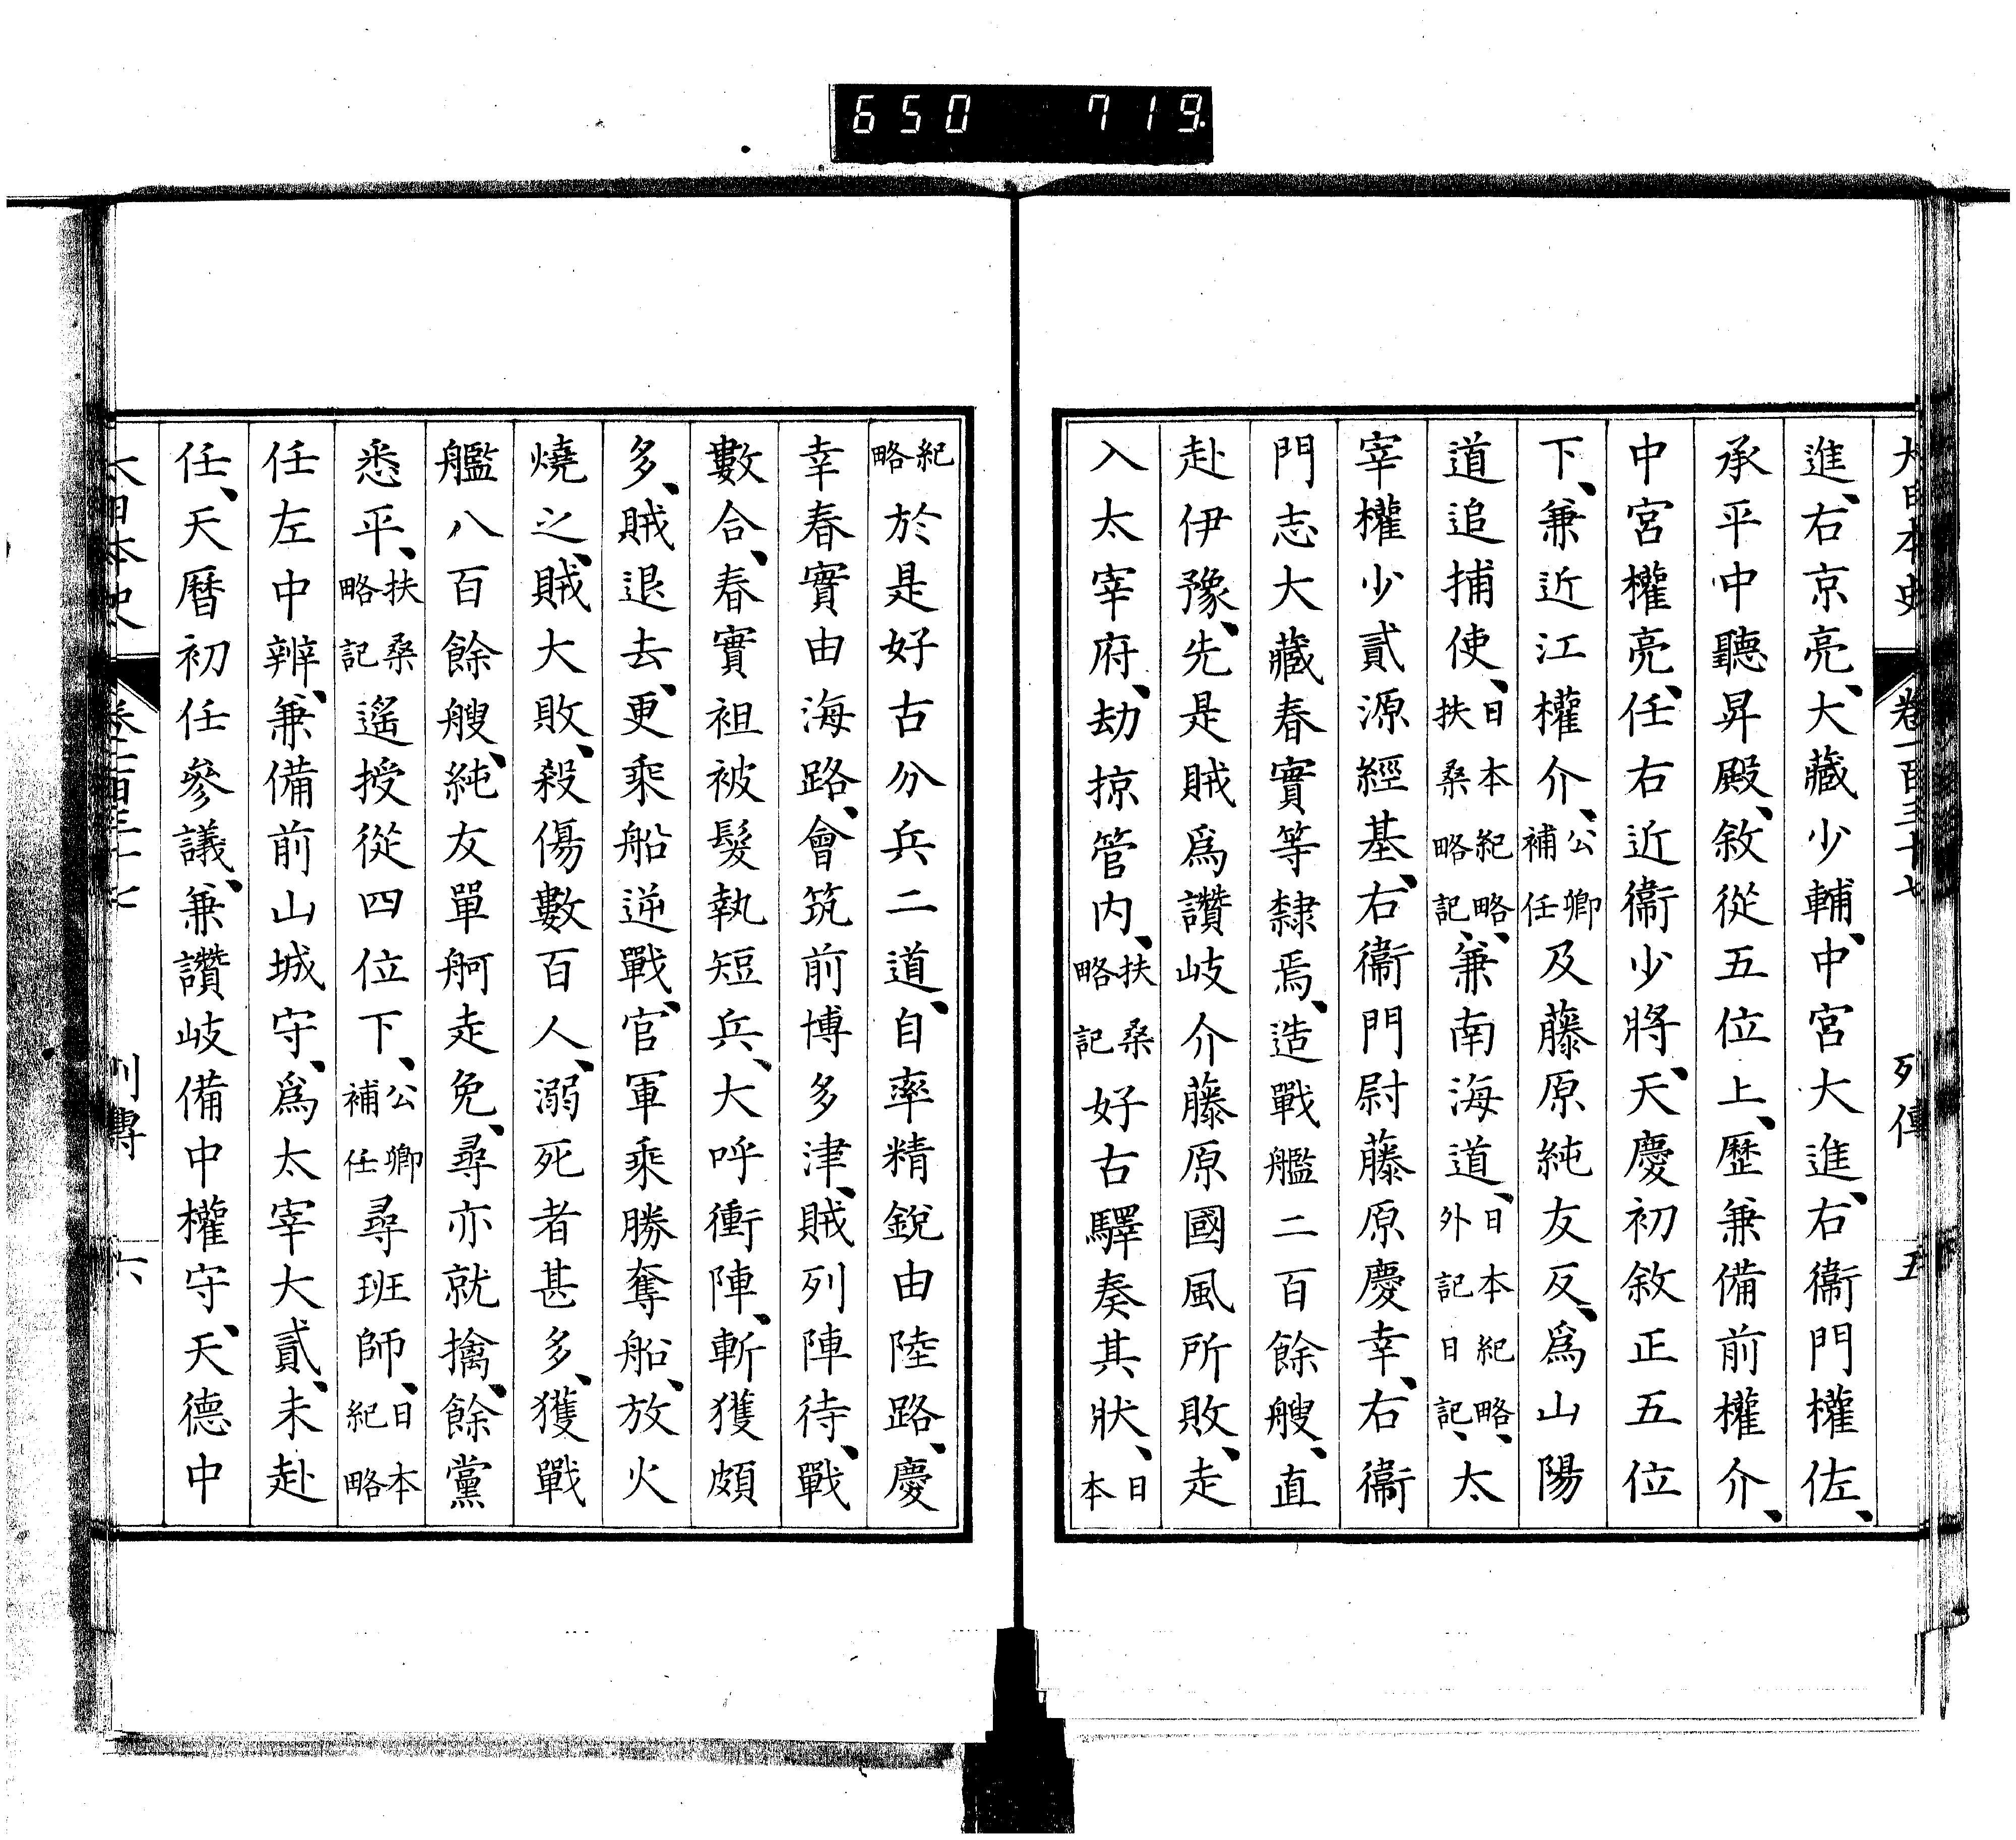 650 719
大日本史 卷一百三十七 列傳 五
進、右京亮、大藏少輔、中宮大進、右衞門權佐、
承平中聽昇殿、敘從五位上、歷兼備前權介、
中宮權亮、任右近衞少將、天慶初敘正五位
下、兼近江權介、公卿補任及藤原純友反、爲山陽
道追捕使、日本紀略、扶桑略記、兼南海道、日本紀略、外記日記、太
宰權少貳源經基、右衞門尉藤原慶幸、右衞
門志大藏春實等隸焉、造戰艦二百餘艘、直
赴伊豫、先是賊爲讚岐介藤原國風所敗、走
入太宰府、劫掠管內、扶桑略記好古驛奏其狀、日本
紀略於是好古分兵二道、自率精銳由陸路、慶
幸春實由海路、會筑前博多津、賊列陣待、戰
數合、春實袒被髮執短兵、大呼衝陣、斬獲頗
多、賊退去、更乘船逆戰、官軍乘勝奪船、放火
燒之、賊大敗、殺傷數百人、溺死者甚多、獲戰
艦八百餘艘、純友單舸走免、尋亦就擒、餘黨
悉平、扶桑略記遙授從四位下、公卿補任尋班師、日本紀略
任左中辨、兼備前山城守、爲太宰大貳、未赴
任、天曆初任參議、兼讚岐備中權守、天德中
大日本史 卷一百三十七 列傳 六